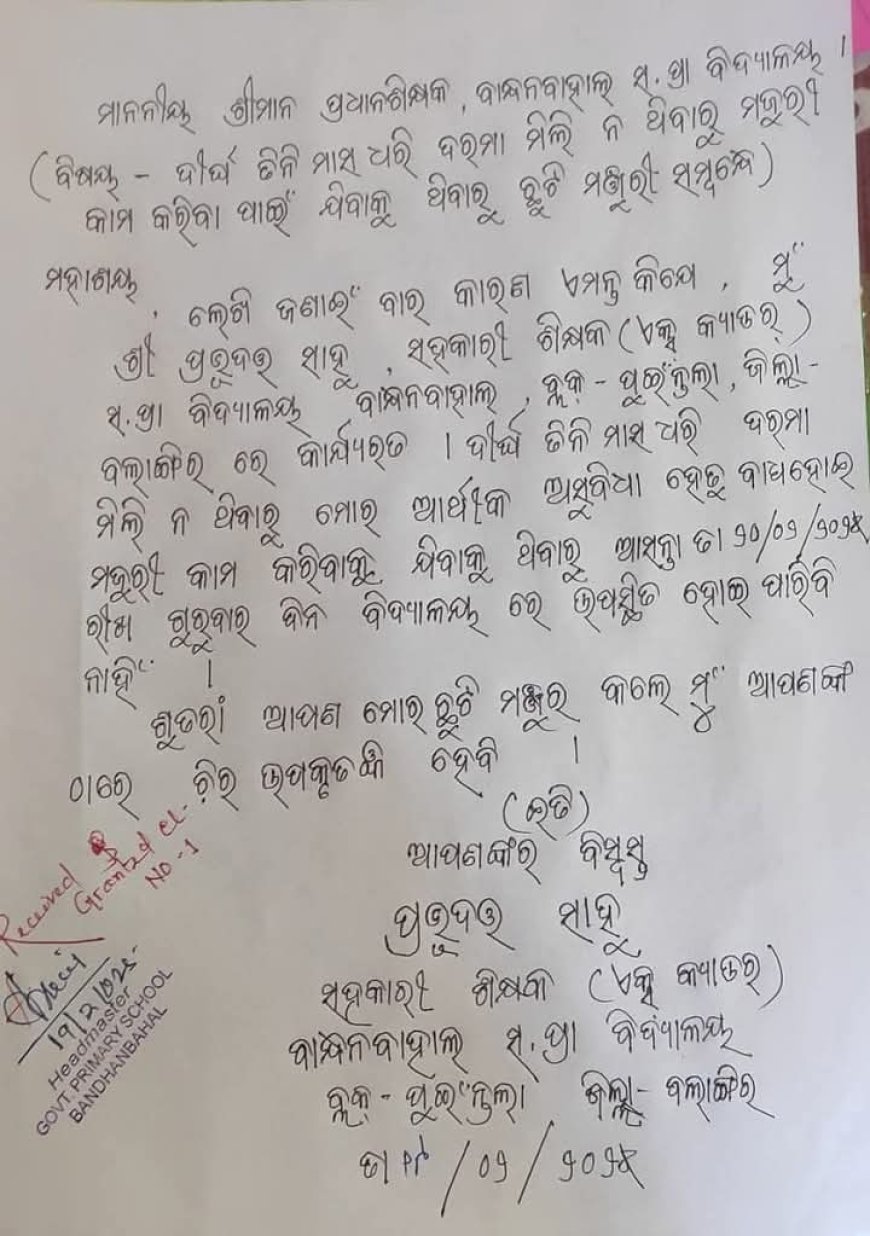 ମାନନୀୟ ଶ୍ରୀମାନ ପ୍ରଧାନଶିକ୍ଷକ, ବାନ୍ଧନବାହାଲ ସ.ପ୍ରା ବିଦ୍ୟାଳୟ ।
(ବିଷୟ - ଦୀର୍ଘ ତିନି ମାସ ଧରି ଦରମା ମିଲି ନ ଥିବାରୁ ମଜୁରୀ
କାମ କରିବା ପାଇଁ ଯିବାକୁ ଥିବାରୁ ଛୁଟି ମଞ୍ଜୁରୀ ସମ୍ବନ୍ଧେ)
ମହାଶୟ,
ଲେଖି ଜଣାଇଁ ବାର କାରଣ ଏମନ୍ତ କିଯେ, ମୁଁ
ଶ୍ରୀ ପ୍ରଭୁଦତ୍ତ ସାହୁ, ସହକାରୀ ଶିକ୍ଷକ (ଏକ୍ସ କ୍ୟାଡର୍)
ସ.ପ୍ରା ବିଦ୍ୟାଳୟ ବାନ୍ଧନବାହାଲ, ବ୍ଲକ୍ - ପୁଇଁନ୍ତଲା, ଜିଲ୍ଲା -
ବଲାଙ୍ଗିର ରେ କାର୍ଯ୍ୟରତ । ଦୀର୍ଘ ତିନି ମାସ ଧରି ଦରମା
ମିଲି ନ ଥିବାରୁ ମୋର ଆର୍ଥୀକ ଅସୁବିଧା ହେତୁ ବାଧହୋଇ
ମଜୁରୀ କାମ କରିବାକୁ ଯିବାକୁ ଥିବାରୁ ଆସନ୍ତା ତା ୨୦/୦୨/୨୦୨୫
ରୀଖ ଗୁରୁବାର ଦିନ ବିଦ୍ୟାଳୟ ରେ ଉପସ୍ଥିତ ହୋଇ ପାରିବି
ନାହିଁ ।
ଶୁତରାଂ ଆପଣ ମୋର ଛୁଟି ମଞ୍ଜୁର କଲେ ମୁଁ ଆପଣଙ୍କ
ଠାରେ ଚିର ଉପକୃତଙ୍କି ହେବି ।
(ଇତି)
ଆପଣଙ୍କର ବିଶ୍ବସ୍ତ
ପ୍ରଭୁଦତ୍ତ ସାହୁ
ସହକାରୀ ଶିକ୍ଷକ (ଏକ୍ସ କ୍ୟାଡର)
ବାନ୍ଧନବାହାଲ ସ.ପ୍ରା ବିଦ୍ୟାଳୟ
ବ୍ଲକ୍ - ପୁଇଁନ୍ତଲା ଜିଲ୍ଲା - ବଲାଙ୍ଗିର
ତା ୧୯/୦୨/୨୦୨୫
Received &
Granted CL.
NO-1
19/2/2025
Headmaster
GOVT. PRIMARY SCHOOL
BANDHANBAHAL